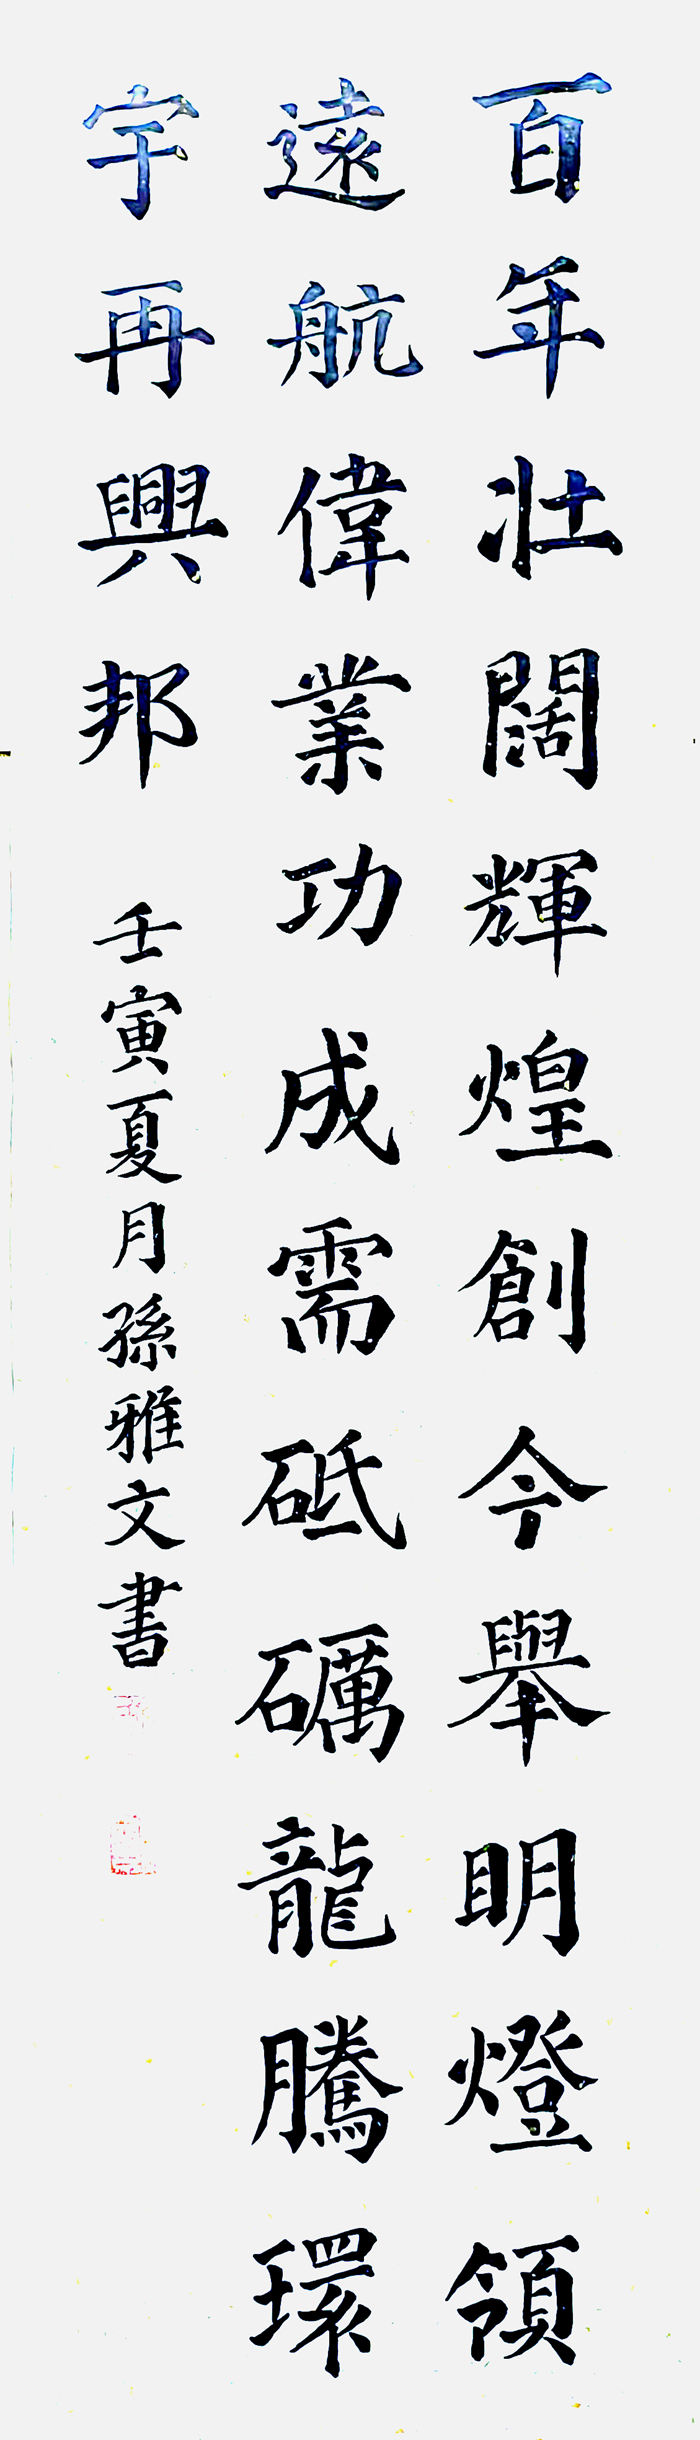 百年壯闊輝煌創今舉明燈領
遠航偉業功成需砥礪龍騰環
宇再興邦
壬寅夏月孫雅文書